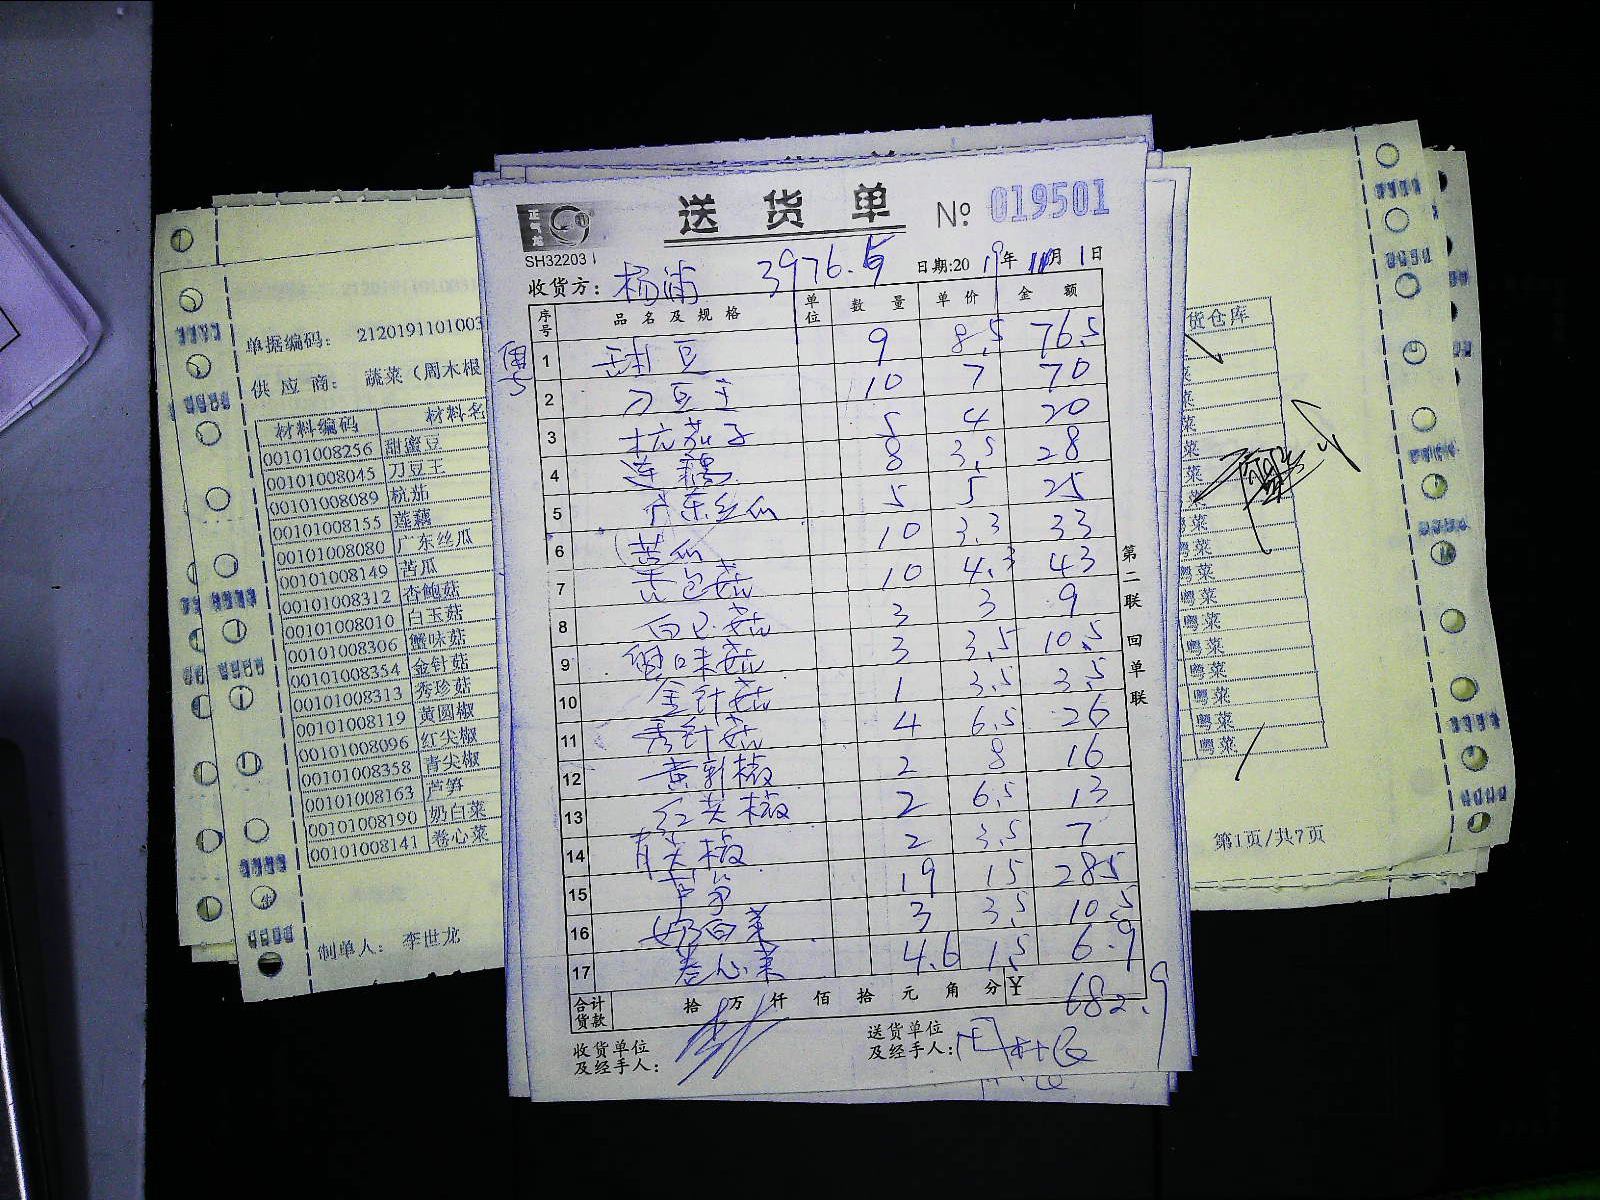 送货单 № 019501
正气龙
SH32203
收货方: 杨浦 3976.5 日期:20 19年 11月 1日
序号 品名及规格 单位 数量 单价 金额
1 甜豆 9 8.5 76.5
2 刀豆王 10 7 70
3 杭茄子 5 4 20
4 莲藕 8 3.5 28
5 广东丝瓜 5 5 25
6 苦瓜 10 3.3 33
7 杏包菇 10 4.3 43
8 白玉菇 3 3 9
9 蟹味菇 3 3.5 10.5
10 金针菇 1 3.5 3.5
11 秀针菇 4 6.5 26
12 黄彩椒 2 8 16
13 红尖椒 2 6.5 13
14 青尖椒 2 3.5 7
15 芦笋 19 15 285
16 奶白菜 3 3.5 10.5
17 卷心菜 4.6 1.5 6.9
合计货款 拾 万 仟 佰 拾 元 角 分 ¥ 682.9
收货单位及经手人:
送货单位及经手人: 周木根
第二联 回单联
单据编码: 2120191101003
供应商: 蔬菜(周木根
材料编码 材料名
00101008256 甜蜜豆
00101008045 刀豆王
00101008089 杭茄
00101008155 莲藕
00101008080 广东丝瓜
00101008149 苦瓜
00101008312 杏鲍菇
00101008010 白玉菇
00101008306 蟹味菇
00101008354 金针菇
00101008313 秀珍菇
00101008119 黄圆椒
00101008096 红尖椒
00101008358 青尖椒
00101008163 芦笋
00101008190 奶白菜
00101008141 卷心菜
制单人: 李世龙
货仓库
菜
菜
菜
菜
菜
菜
粤菜
粤菜
粤菜
粤菜
粤菜
粤菜
粤菜
粤菜
粤菜
粤菜
第1页/共7页